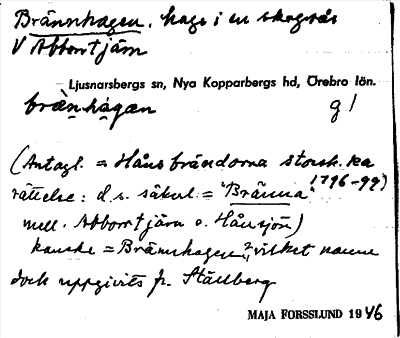 Brännhagen, hage i en skogsås
V Abborrtjärn
Ljusnarsbergs sn, Nya Kopparbergs hd, Örebro län.
brä̀nhágan g!
(Antagl. = Håns brändorna storsk. ka
rättelse: d. s. säkerl. = "Bränna" 1796-99)
mell. Abborrtjärn o. Hånsjön)
kanske = Brännhagen, vilket namn
dock uppgivits fr. Ställberg
MAJA FORSSLUND 1946